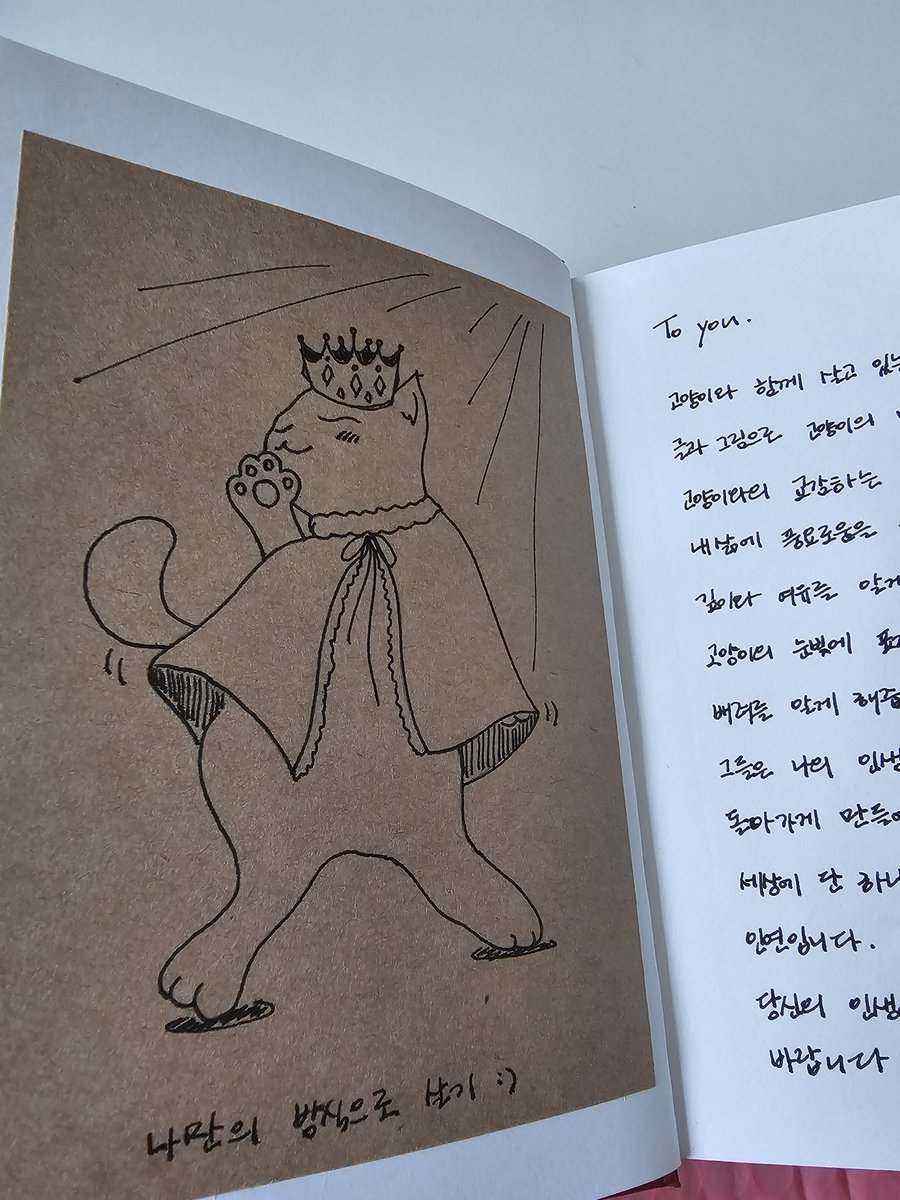 나만의 방식으로 살기 :)
To you.
고양이와 함께 살고 있는
글과 그림으로 고양이의
고양이와의 교감하는
내 삶에 풍요로움을
깊이와 여유를 알게
고양이의 눈빛에
배려를 알게 해준
그들은 나의 인생
돌아가게 만들어
세상에 단 하나
인연입니다.
당신의 인생
바랍니다